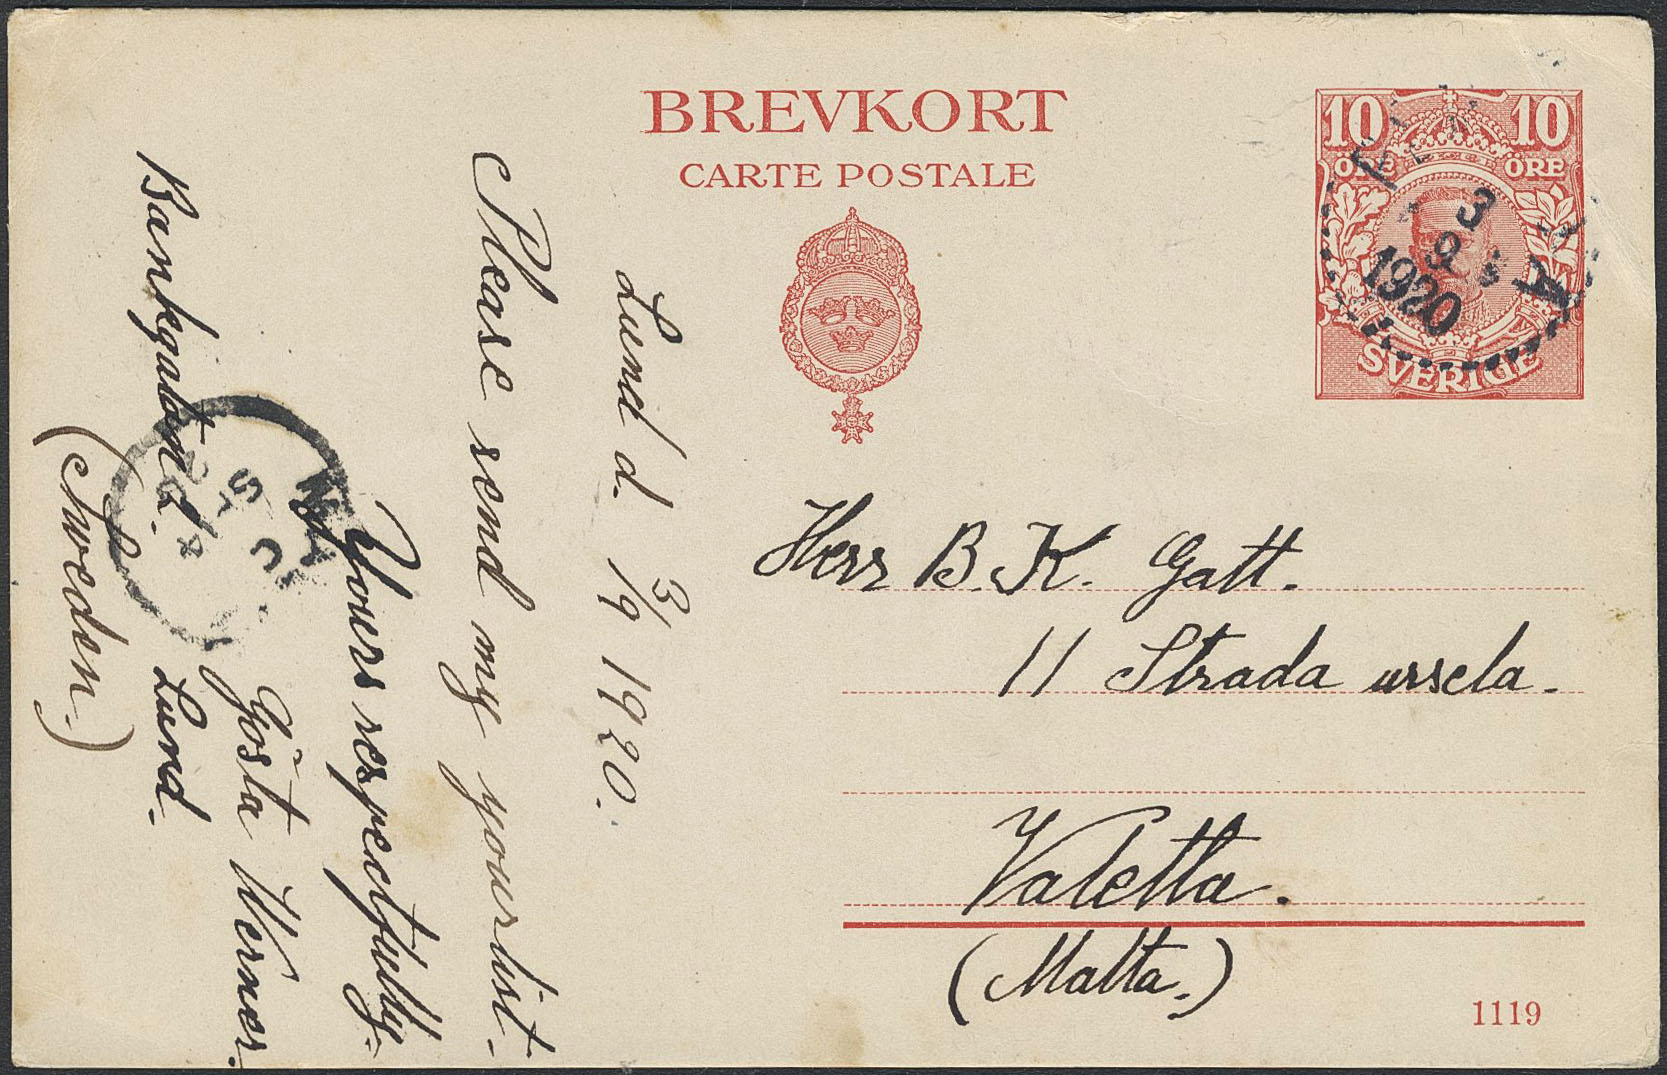 BREVKORT
CARTE POSTALE
10 10
ÖRE ÖRE
SVERIGE
3
9
1920
Herr B. K. Gatt.
11 Strada ursela.
Valetta.
(Malta.)
1119
Lund d. 3/9 1920.
Please send my yourlist.
Yours respectfully.
Gösta Werner.
Lund.
(Sweden.)